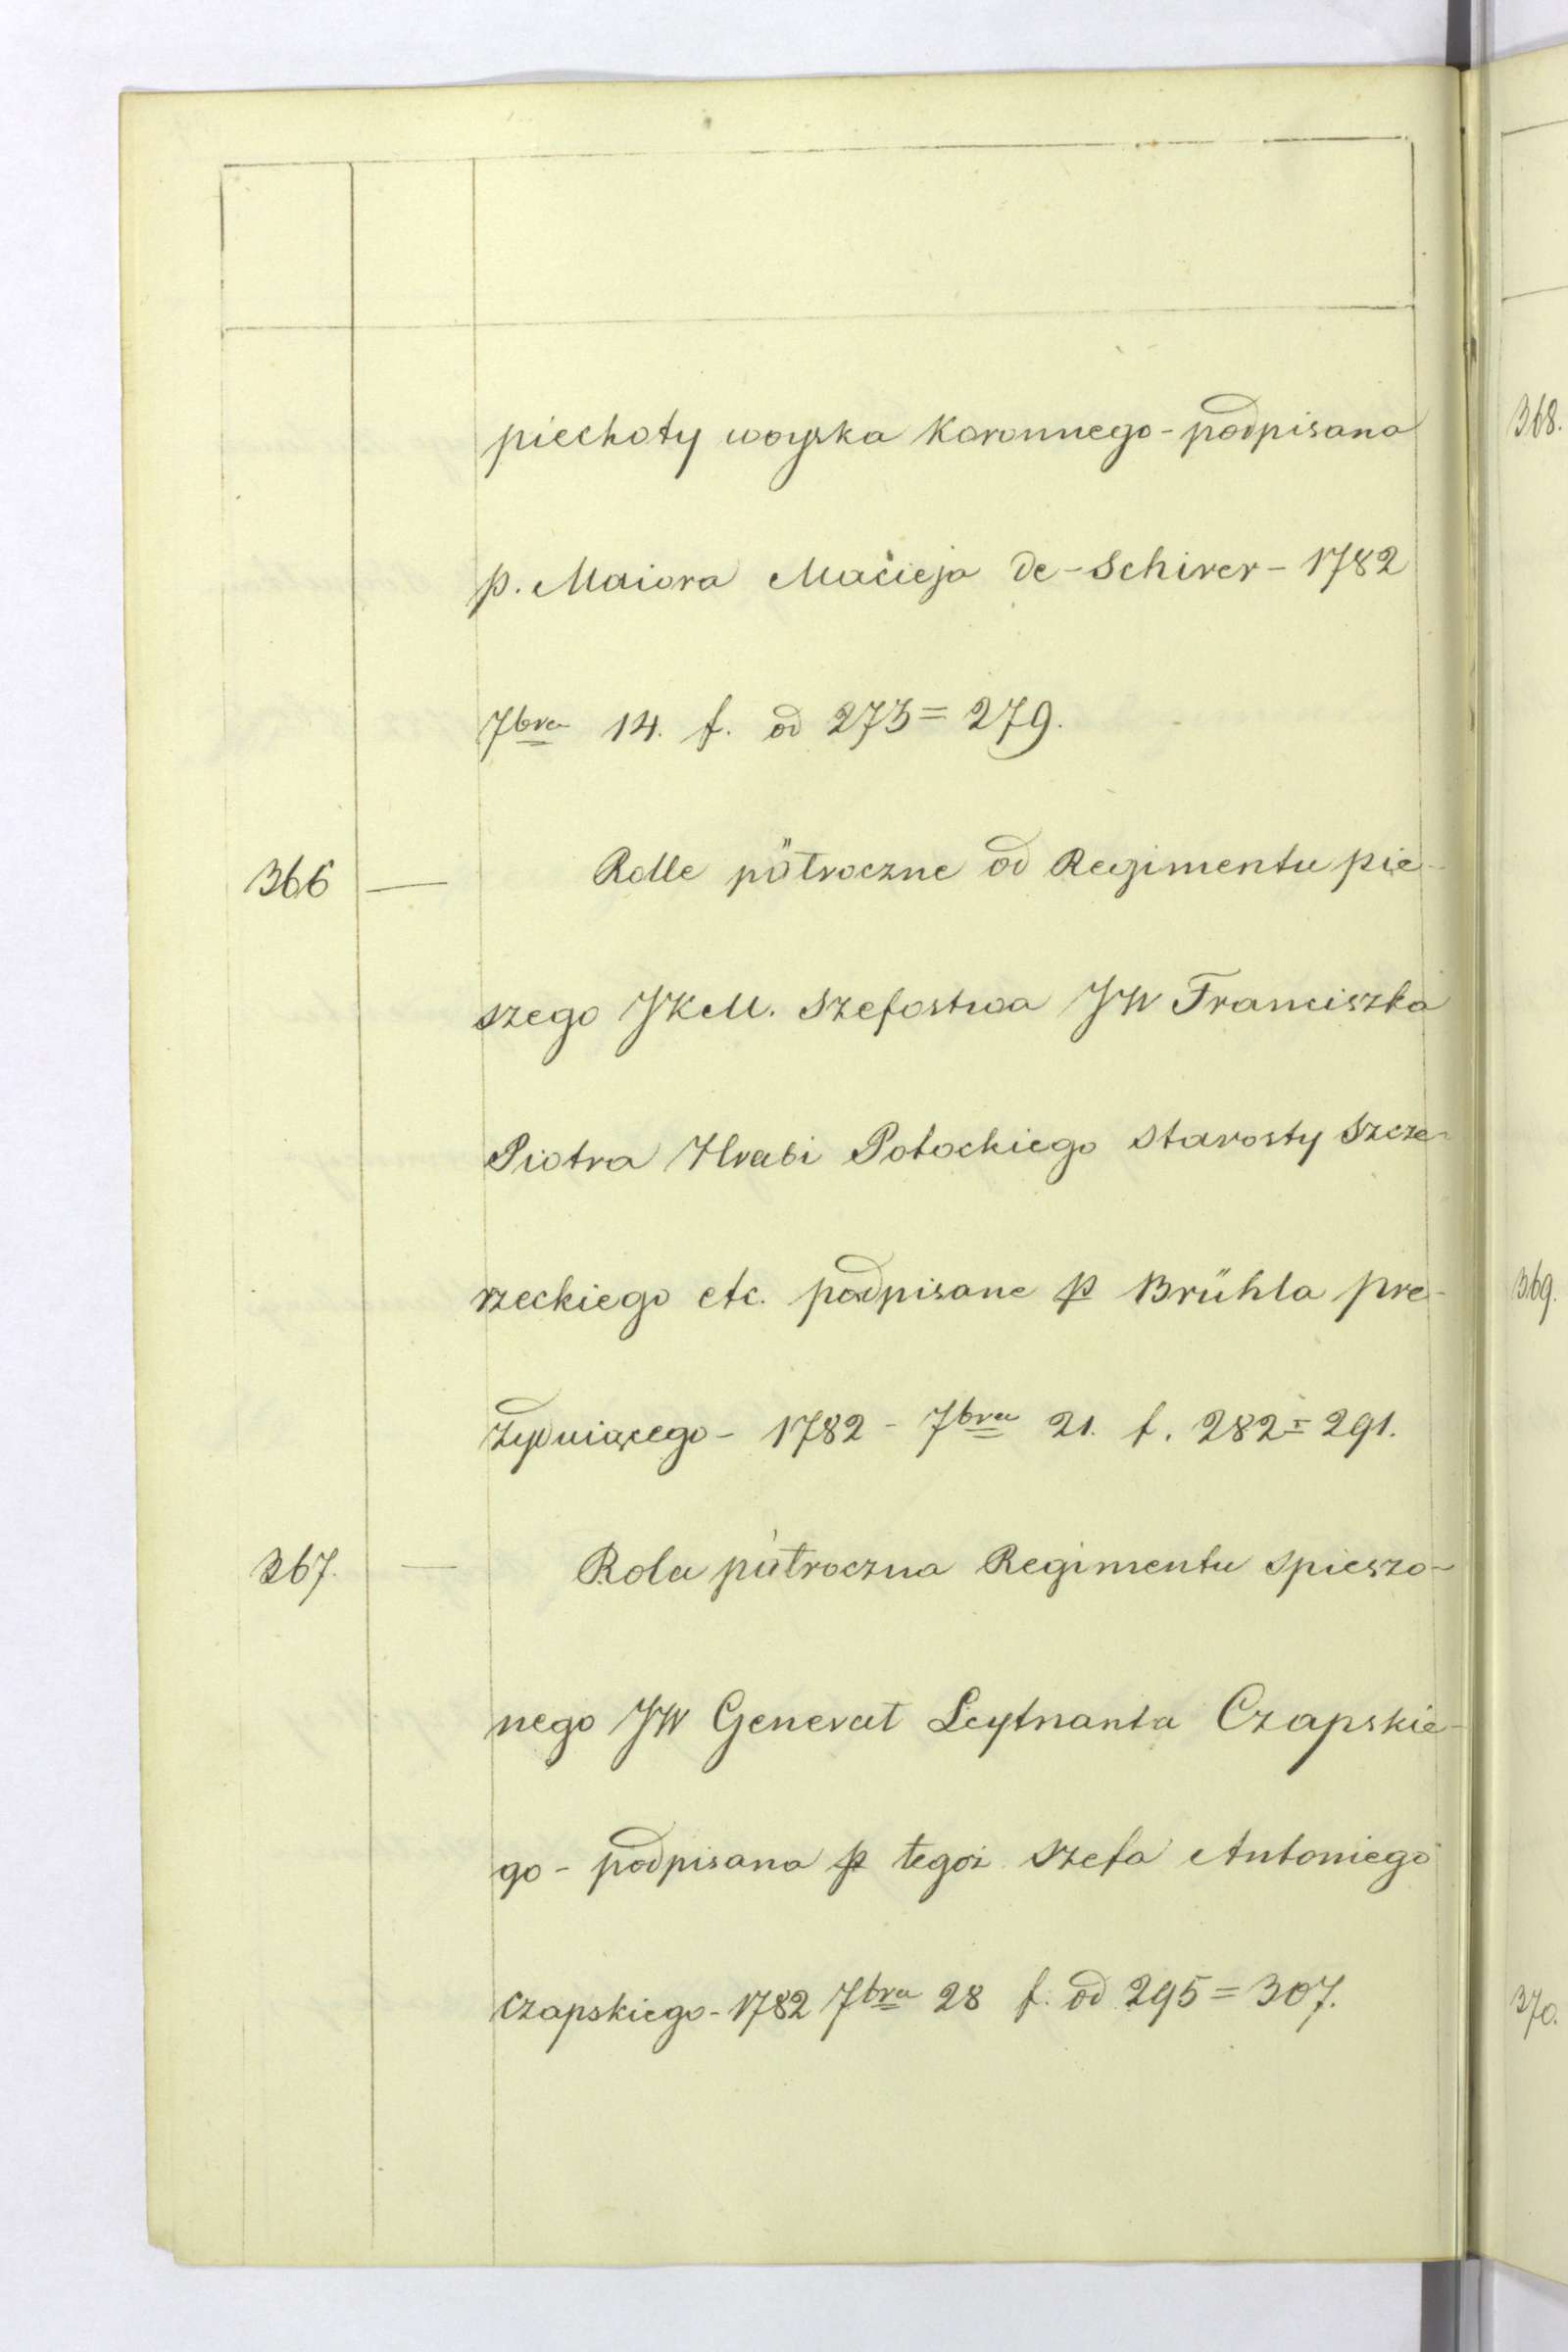 piechoty woyska Koronnego - podpisana
p. Maiora Macieja de - Schirer - 1782
7bra 14. f. od 273 = 279.
366 — Rolle półroczne od Regimentu pie-
szego JKM. Szefostwa JW Franciszka
Piotra Hrabi Potockiego Starosty Szcze-
rzeckiego etc. podpisane p Brühla pre-
zyduiącego - 1782 - 7bra 21. f. 282 = 291.
367. — Rola półroczna Regimentu spieszo-
nego JW Generał Leytnanta Czapskie-
go - podpisana p tegoż Szefa Antoniego
Czapskiego - 1782 7bra 28 f. od 295 = 307.
368.
369.
370.